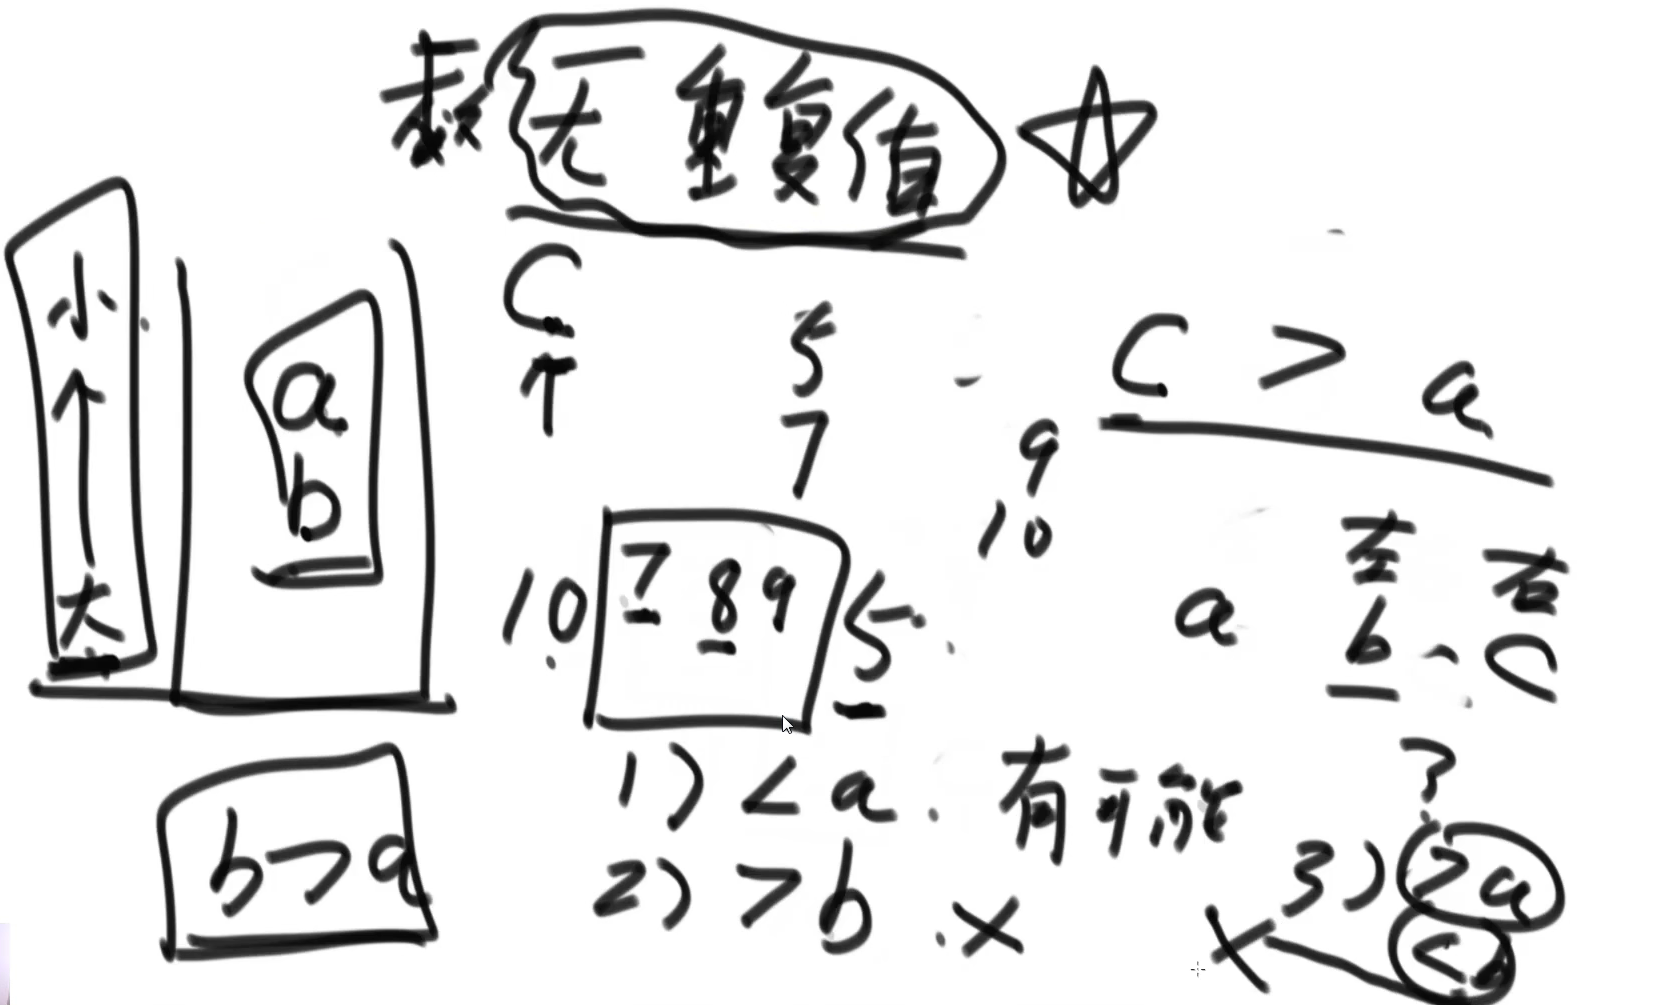 数组无重复值
小
大
a
b
b>a
C
5
7
9
10
10 7 8 9 5
C > a
左 右
a b C
1) < a. 有可能
2) > b . ×
?
3) >a
<b
×